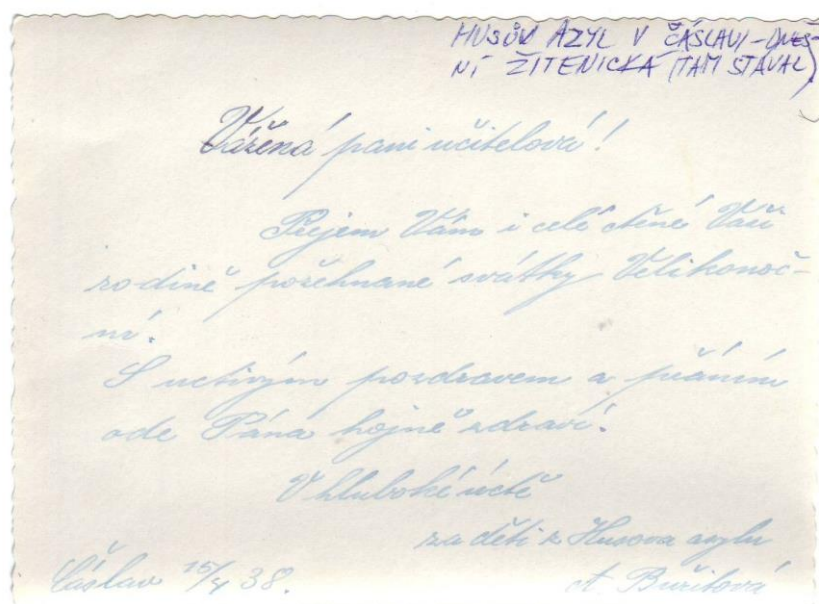 HUSŮV AZYL V ČÁSLAVI - DNEŠ-
NÍ ŽITENICKÁ (TAM STÁVAL)
Vážená paní učitelová!
Přejem Vám i celé ctěné Vaší
rodině požehnané svátky Velikonoč-
ní.
S uctivým pozdravem a přáním
ode Pána hojně zdraví.
V hluboké úctě
za děti z Husova azylu
Čáslav 15/4 38.
A. Buřilová